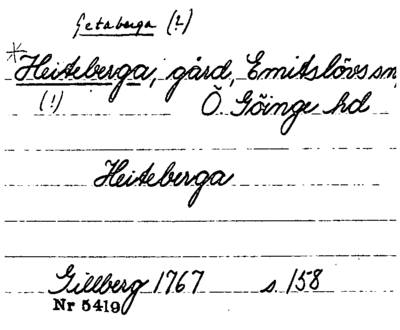 Getaberga (?)
*Heiteberga, gård, Emitslövs sn,
(!) Ö Göinge hd
Heiteberga
Gillberg 1767 s. 158
Nr 5419